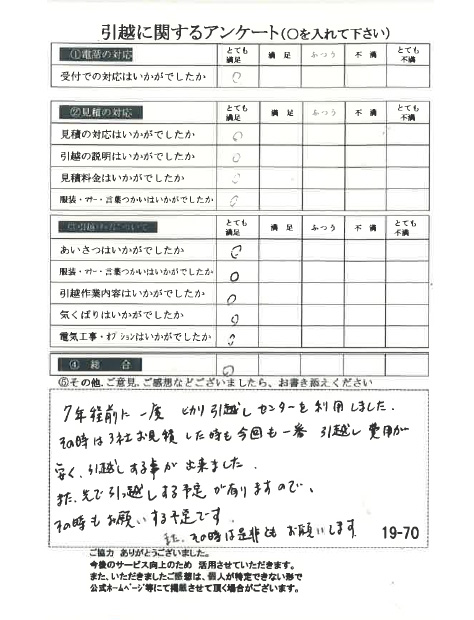 引越に関するアンケート(○を入れて下さい)
①電話の対応 とても満足 満足 ふつう 不満 とても不満
受付での対応はいかがでしたか ○
②見積の対応 とても満足 満足 ふつう 不満 とても不満
見積の対応はいかがでしたか ○
引越の説明はいかがでしたか ○
見積料金はいかがでしたか ○
服装・マナー・言葉つかいはいかがでしたか ○
とても満足 満足 ふつう 不満 とても不満
あいさつはいかがでしたか ○
服装・マナー・言葉つかいはいかがでしたか ○
引越作業内容はいかがでしたか ○
気くばりはいかがでしたか ○
電気工事・オプションはいかがでしたか ○
④ 総 合 ○
⑤その他、ご意見、ご感想などございましたら、お書き添えください
7年程前に一度 ヒカリ引越しセンターを利用しました.
その時は3社お見積した時も今回も一番 引越し費用が
安く、引越しする事が出来ました.
また、先で引っ越しする予定が有りますので、
その時もお願いする予定です.
また、その時は是非ともお願いします. 19-70
ご協力 ありがとうございました。
今後のサービス向上のため 活用させていただきます。
また、いただきましたご感想は、個人が特定できない形で
公式ホームページ等にて掲載させて頂く場合がございます。